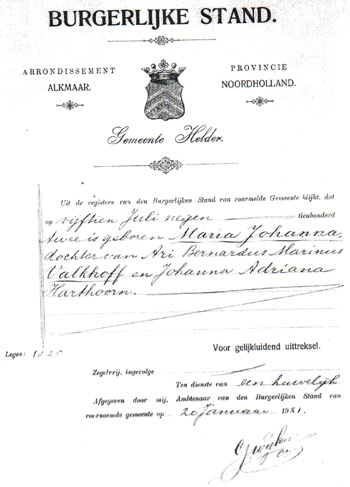 BURGERLIJKE STAND.
ARRONDISSEMENT
ALKMAAR.
PROVINCIE
NOORDHOLLAND.
Gemeente Helder.
Uit de registers van den Burgerlijken Stand van voormelde Gemeente blijkt, dat
op vijftien Juli negentienhonderd
twee is geboren Maria Johanna,
dochter van Ari Bernardus Marinus
Valkhoff en Johanna Adriana
Harthoorn.
Leges:
Voor gelijkluidend uittreksel.
Zegelvrij, ingevolge
Ten dienste van een huwelijk
Afgegeven door mij, Ambtenaar van den Burgerlijken Stand van
voornoemde gemeente op 20 Januari 1921.